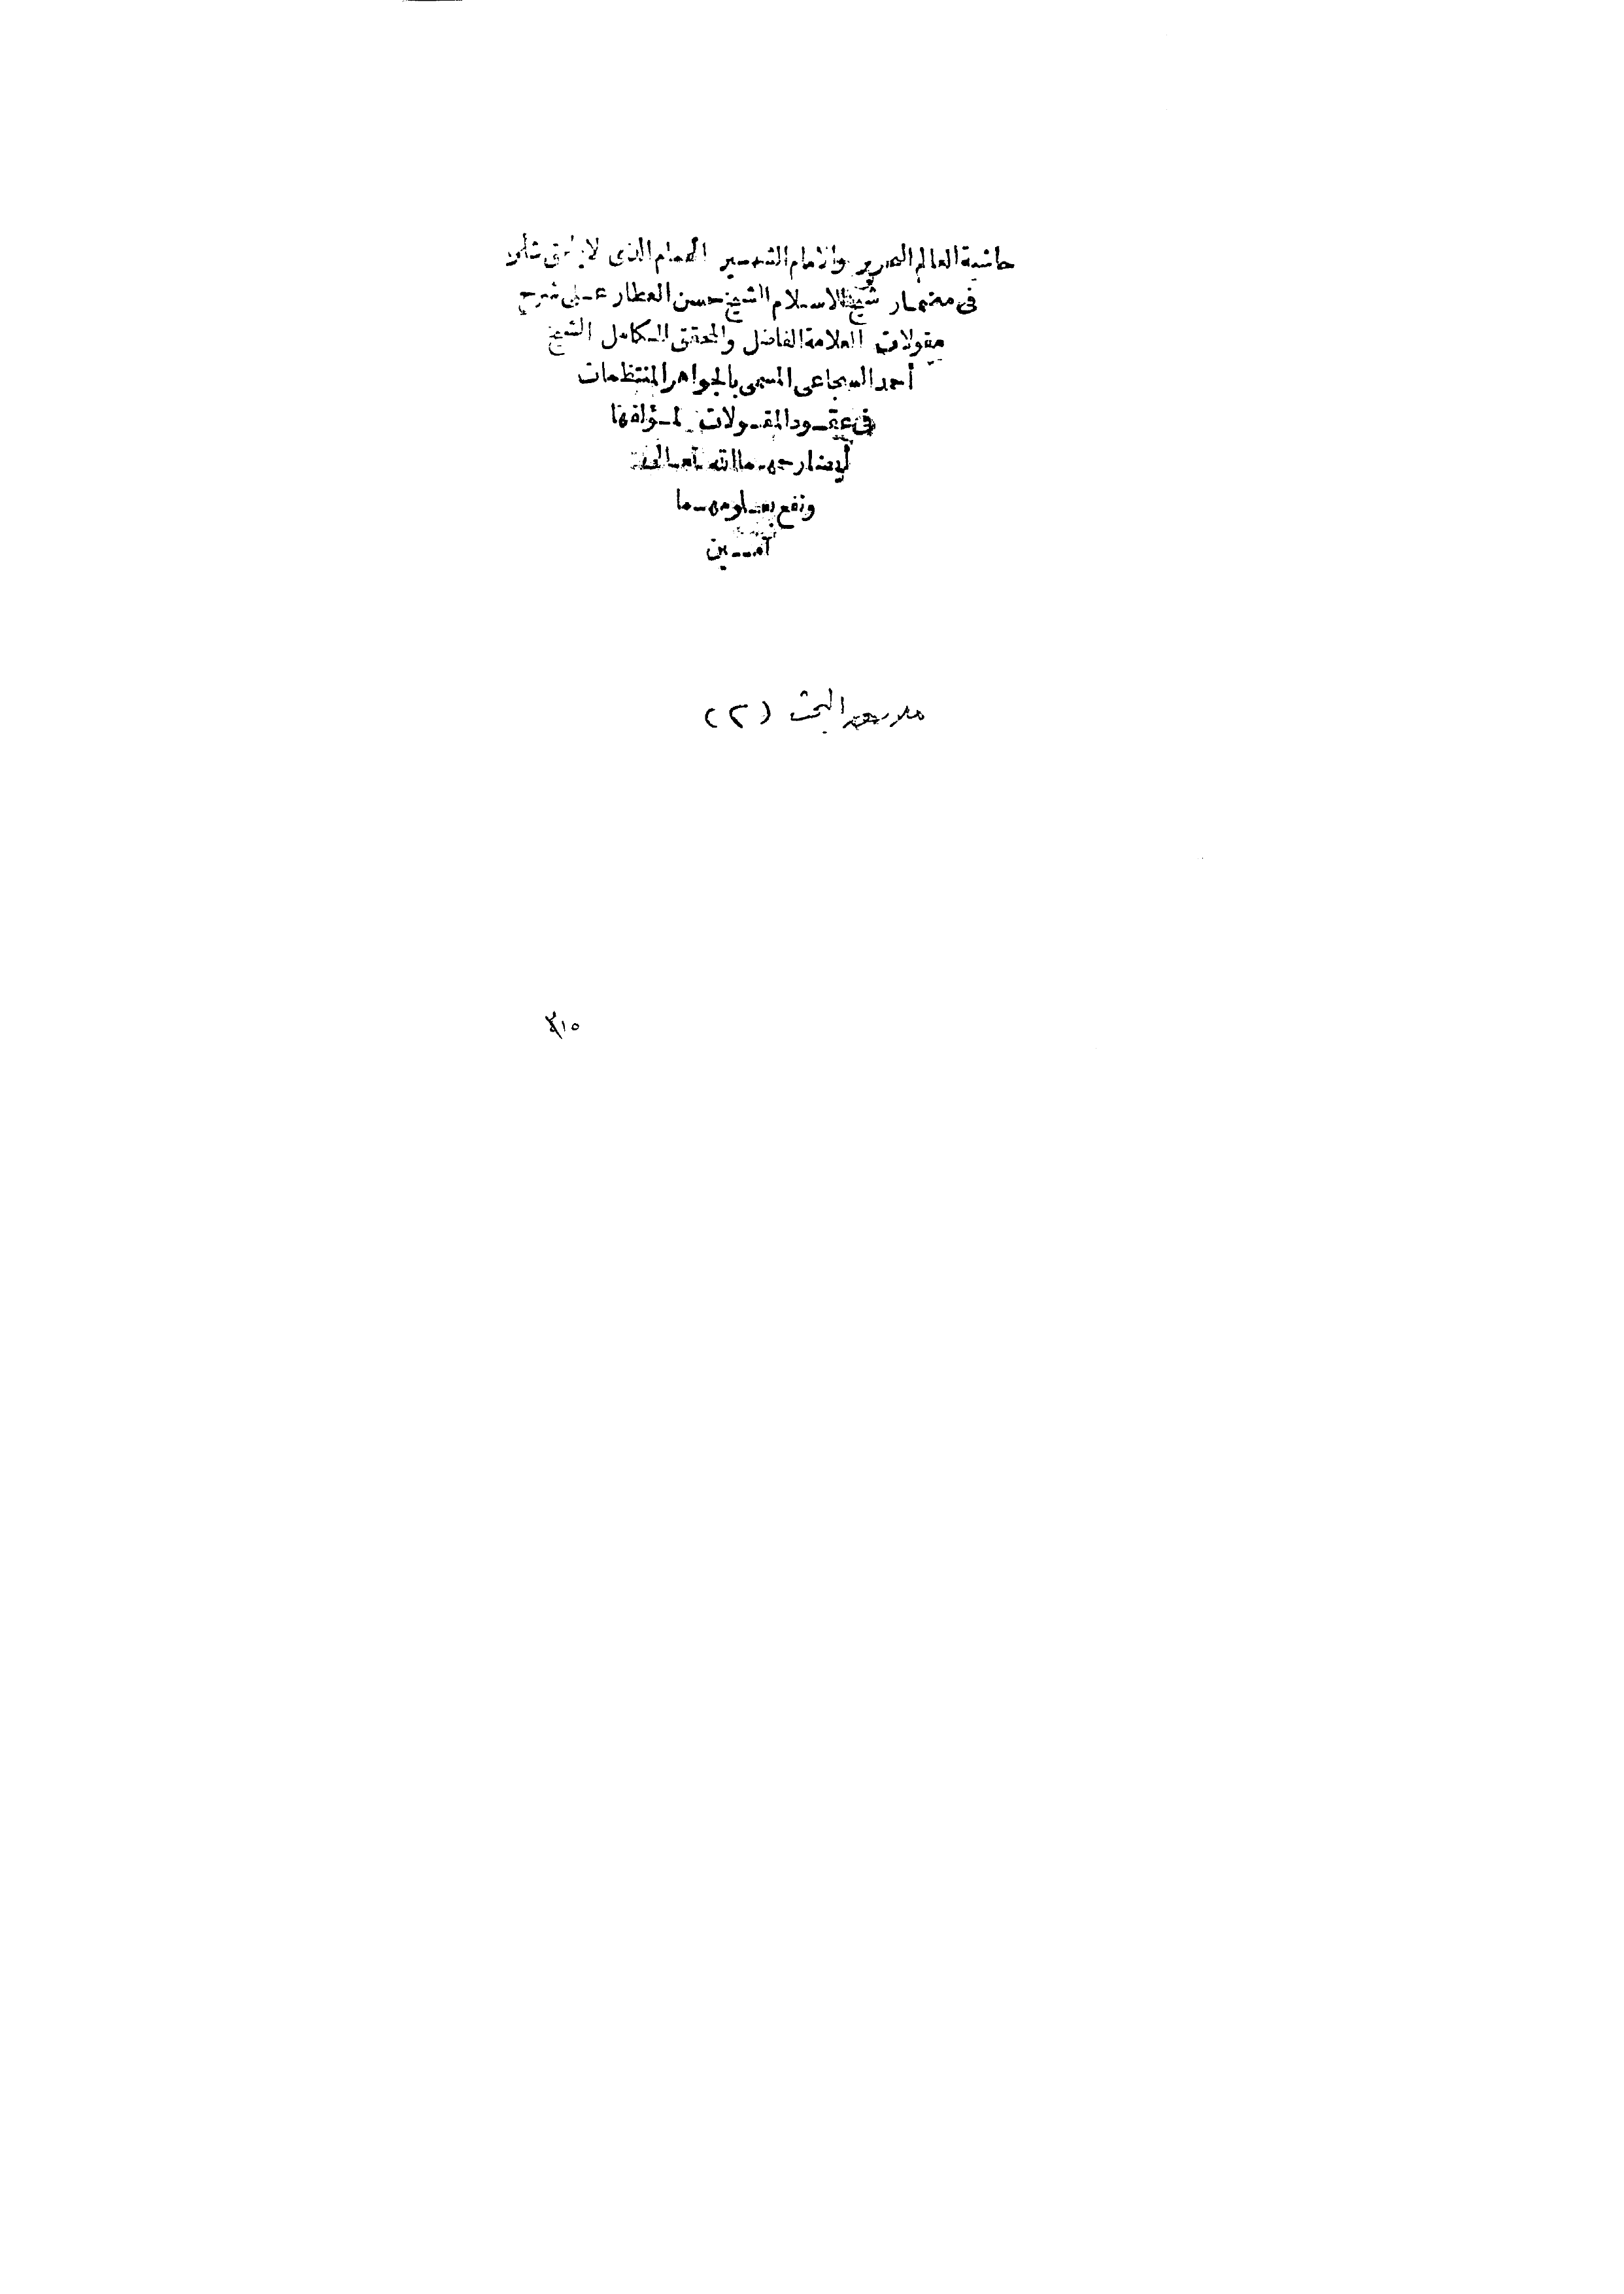 حاشية العالم النحرير والامام الشهير الهمام الذى لا يلحق شأو
فى مضمار شيخ الاسلام الشيخ حسن العطار على شرح
مقولات العلامة الفاضل والمحقق الكامل الشيخ
أحمد السجاعى المسمى بالجواهر المنتظمات
فى عقود المقولات لمؤلفها
أيضا رحمهما الله تعالى
ونفع بعلومهما
آمين
البحث (٢)